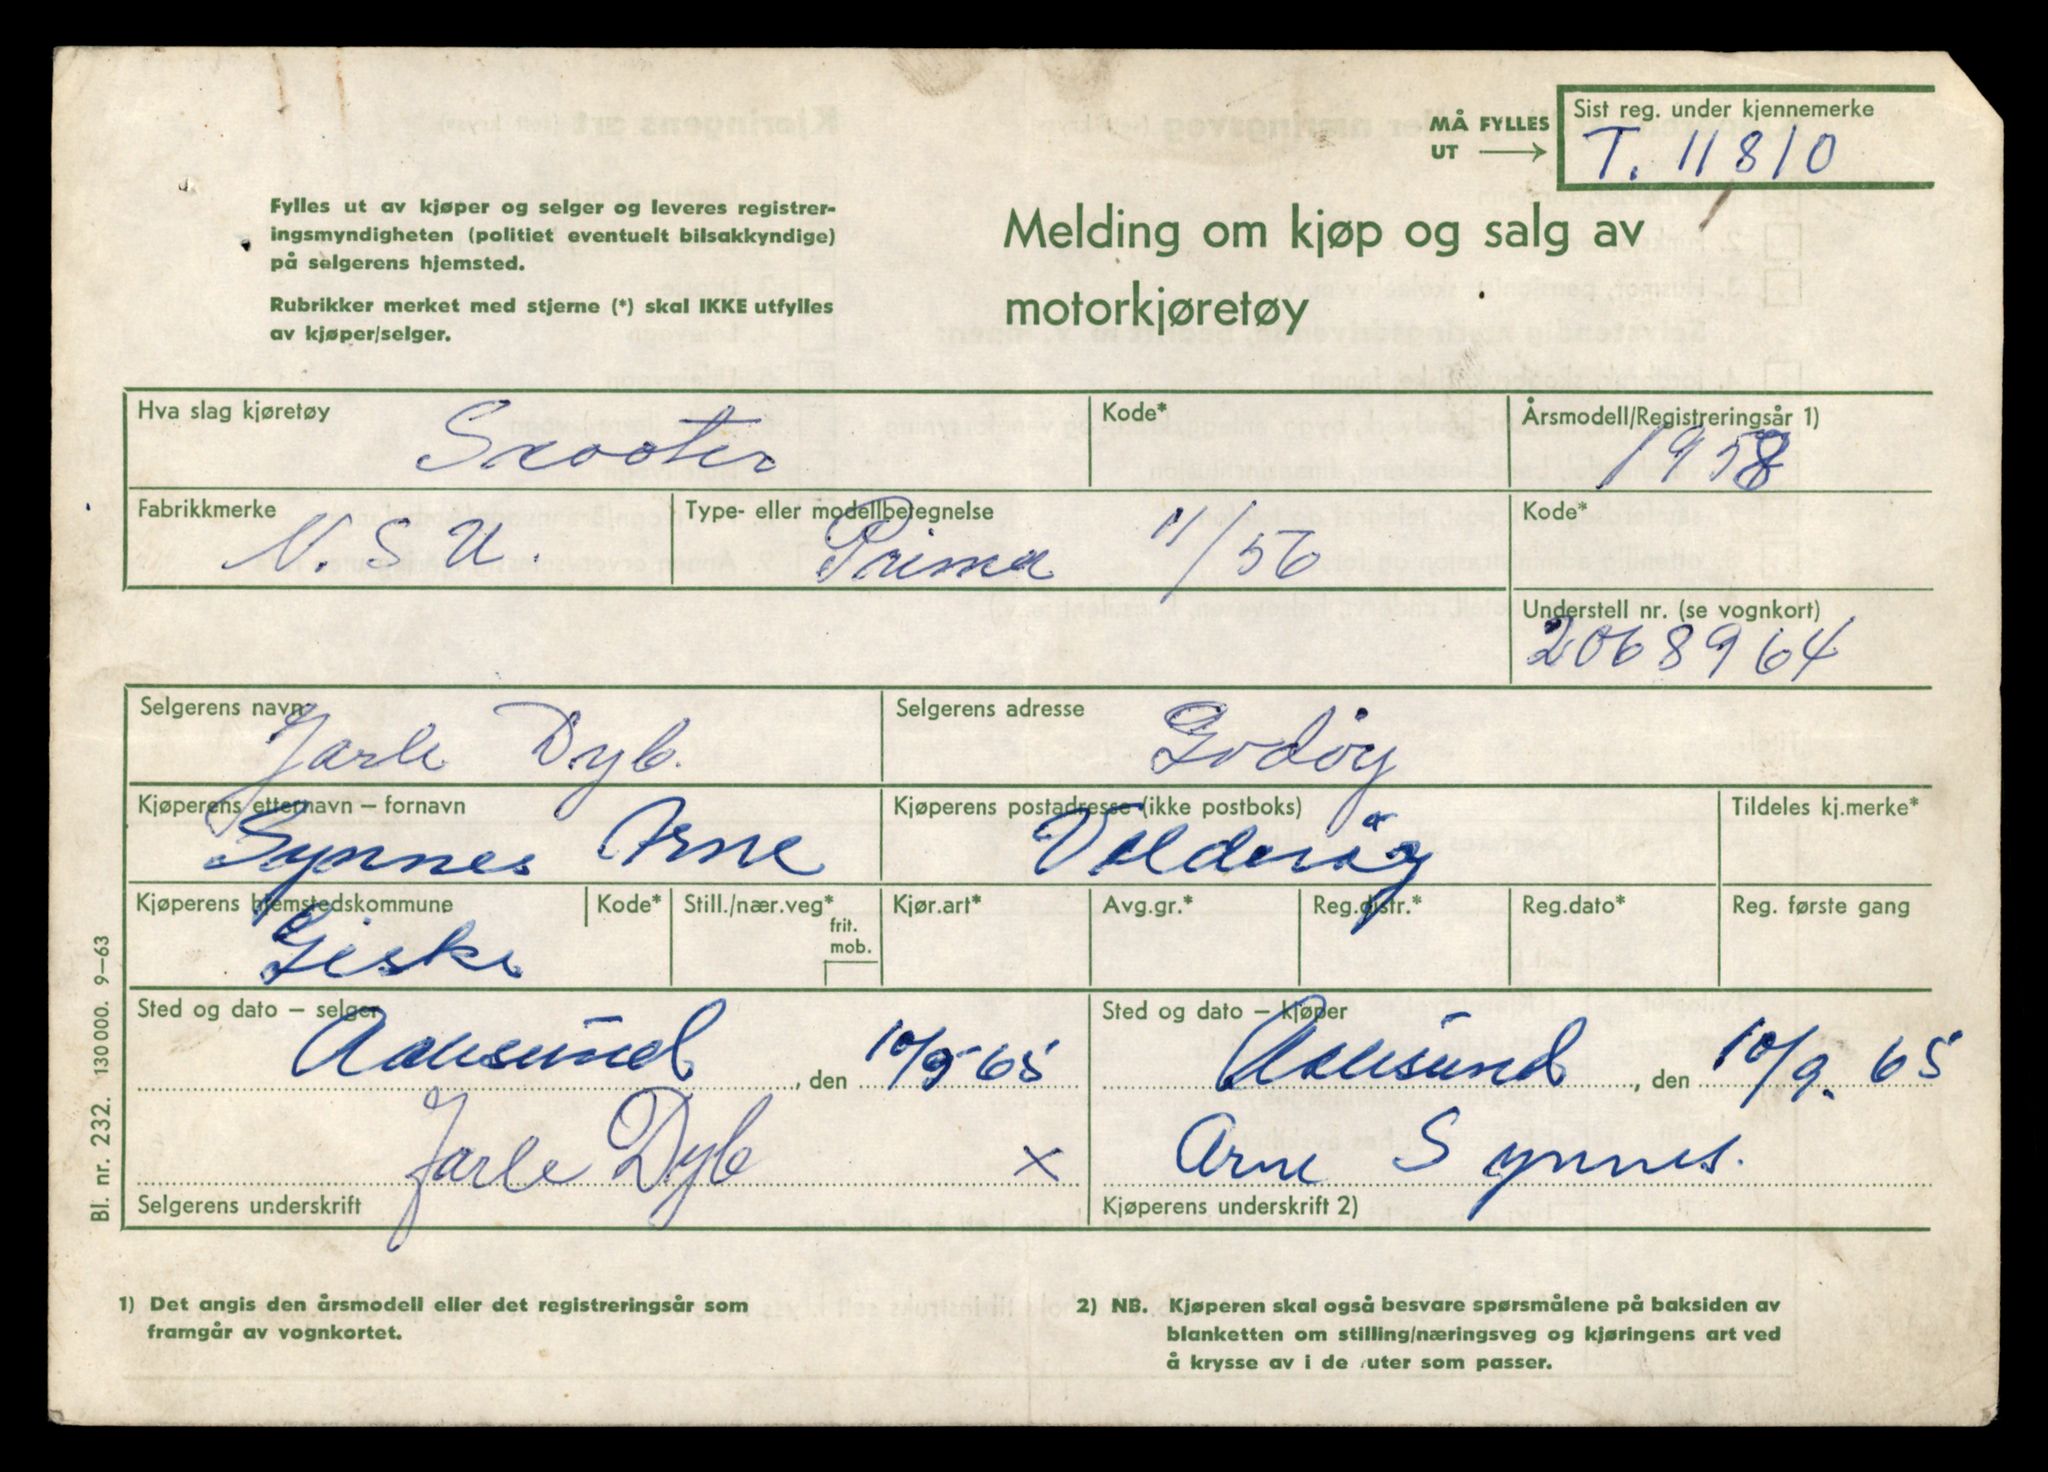 Sist reg. under kjennemerke
MÅ FYLLES
UT
T. 11810
Fylles ut av kjøper og selger og leveres registrer-
ingsmyndigheten (politiet eventuelt bilsakkyndige)
på selgerens hjemsted.
Rubrikker merket med stjerne (*) skal IKKE utfylles
av kjøper/selger.
Melding om kjøp og salg av
motorkjøretøy
Hva slag kjøretøy
Scooter
Kode*
Årsmodell/Registreringsår 1)
1958
Fabrikkmerke
N.S.U.
Type- eller modellbetegnelse
Prima 11/56
Kode*
Understell nr. (se vognkort)
2068964
Selgerens navn
Jarle Dyb.
Selgerens adresse
Godøy
Kjøperens etternavn – fornavn
Synnes Arne
Kjøperens postadresse (ikke postboks)
Valderøy
Tildeles kj.merke*
Kjøperens hjemstedskommune
Giske
Kode*
Still./nær.veg*
frit.
mob.
Kjør.art*
Avg.gr.*
Reg.distr.*
Reg.dato*
Reg. første gang
Sted og dato – selger
Aalesund, den 10/9 65
Sted og dato – kjøper
Aalesund, den 10/9. 65
Jarle Dyb x
Selgerens underskrift
Arne Synnes.
Kjøperens underskrift 2)
Bl. nr. 232. 130 000. 9–63
1) Det angis den årsmodell eller det registreringsår som
framgår av vognkortet.
2) NB. Kjøperen skal også besvare spørsmålene på baksiden av
blanketten om stilling/næringsveg og kjøringens art ved
å krysse av i de ruter som passer.